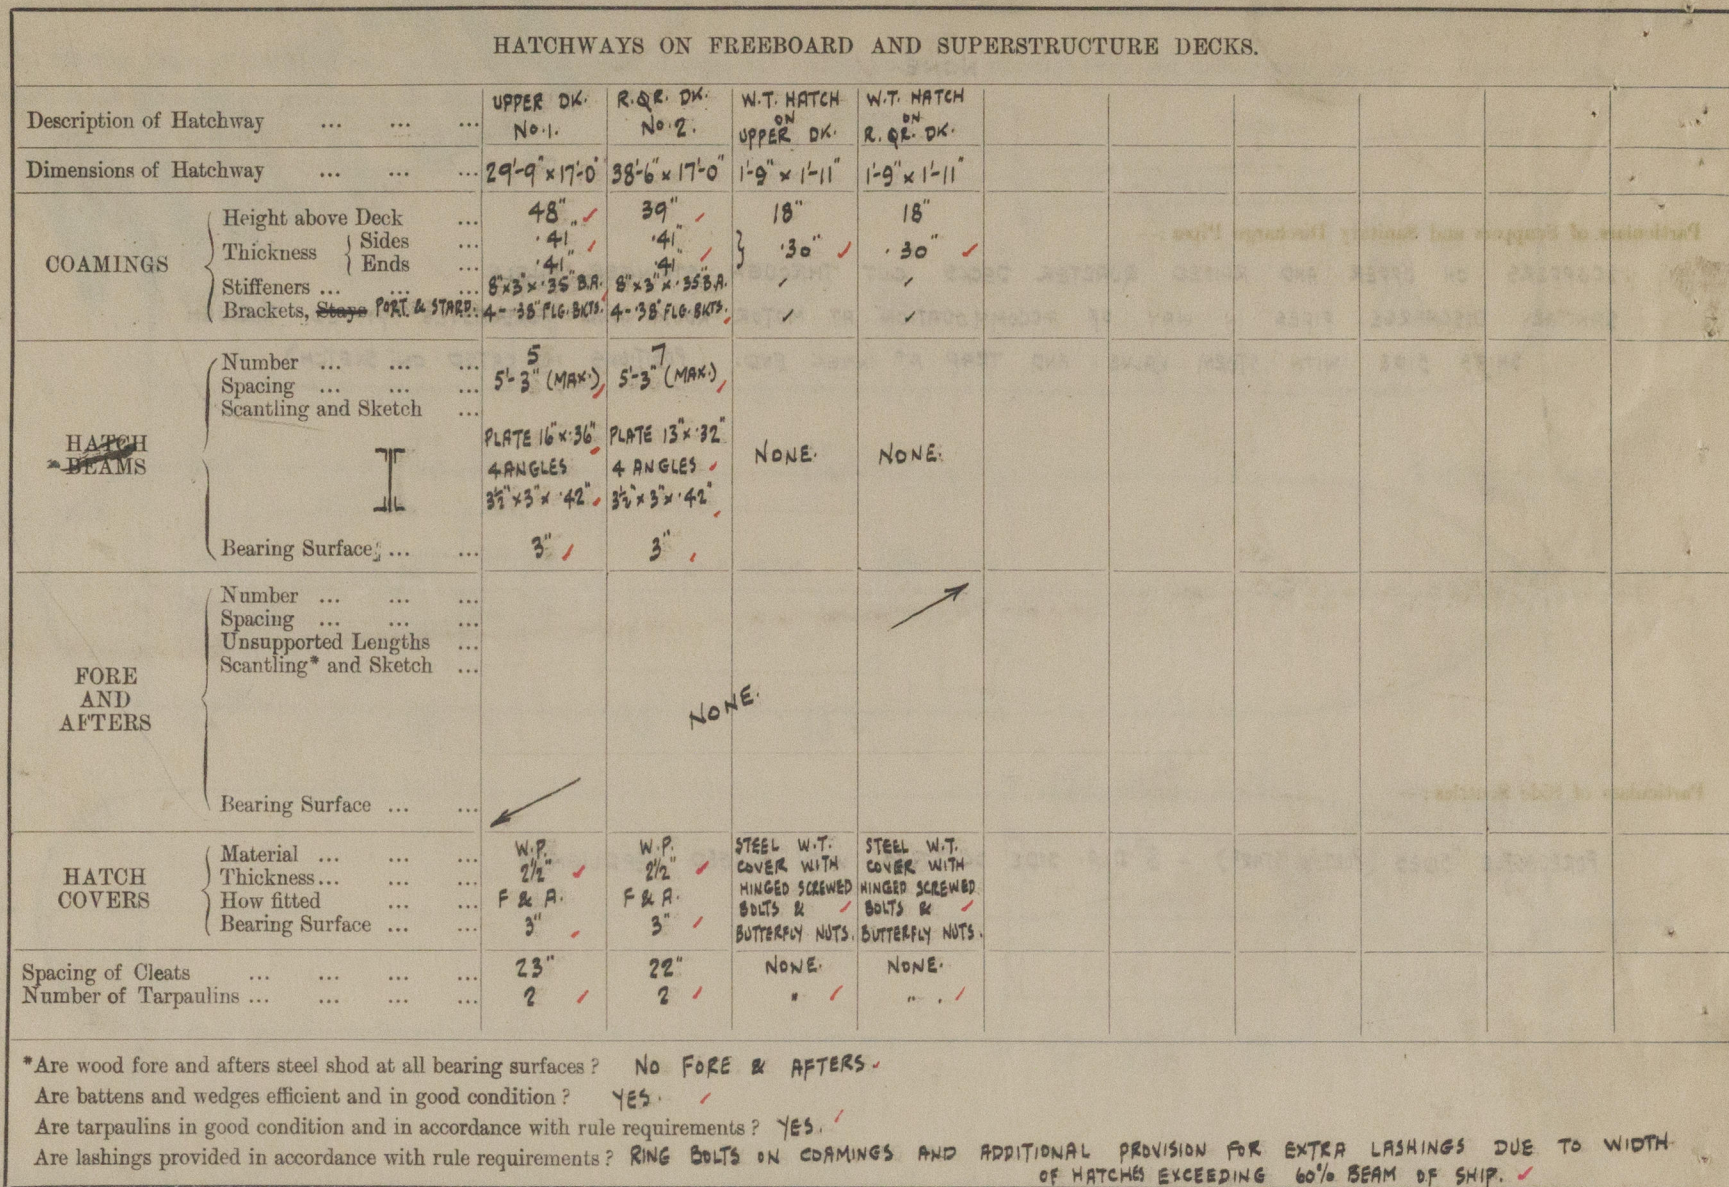 HATCHWAYS ON FREEBOARD AND SUPERSTRUCTURE DECKS.
Description of Hatchway ... ... ... UPPER DK. No. 1. R. QR. DK. No. 2. W.T. HATCH ON UPPER DK. W.T. HATCH ON R. QR. DK.
Dimensions of Hatchway ... ... ... 29'-9" x 17'-0" 38'-6" x 17'-0" 1'-9" x 1'-11" 1'-9" x 1'-11"
COAMINGS
Height above Deck ... 48" 39" 18" 18"
Thickness { Sides ... .41" .41" } .30" .30"
Ends ... .41" .41"
Stiffeners ... ... ... 8"x3"x.35" B.A. 8"x3"x.35" B.A. ✓ ✓
Brackets, Stays PORT & STARD. 4-.38" FLG. BKTS. 4-.38" FLG. BKTS. ✓ ✓
HATCH BEAMS
Number ... ... ... 5 7
Spacing ... ... ... 5'-3" (MAX.) 5'-3" (MAX.)
Scantling and Sketch ...
PLATE 16"x.36" PLATE 13"x.32" NONE. NONE.
4 ANGLES 4 ANGLES
3½"x3"x.42" 3½"x3"x.42"
Bearing Surface ... ... 3" 3"
FORE AND AFTERS
Number ... ... ...
Spacing ... ... ...
Unsupported Lengths ...
Scantling* and Sketch ...
NONE.
Bearing Surface ... ...
HATCH COVERS
Material ... ... ... W.P. W.P. STEEL W.T. COVER WITH HINGED SCREWED BOLTS & BUTTERFLY NUTS. STEEL W.T. COVER WITH HINGED SCREWED BOLTS & BUTTERFLY NUTS.
Thickness ... ... ... 2½" 2½"
How fitted ... ... F & A. F & A.
Bearing Surface ... ... 3" 3"
Spacing of Cleats ... ... ... ... 23" 22" NONE. NONE.
Number of Tarpaulins ... ... ... ... 2 2 " "
*Are wood fore and afters steel shod at all bearing surfaces ? NO FORE & AFTERS.
Are battens and wedges efficient and in good condition ? YES.
Are tarpaulins in good condition and in accordance with rule requirements ? YES.
Are lashings provided in accordance with rule requirements ? RING BOLTS ON COAMINGS AND ADDITIONAL PROVISION FOR EXTRA LASHINGS DUE TO WIDTH
OF HATCHES EXCEEDING 60% BEAM OF SHIP.